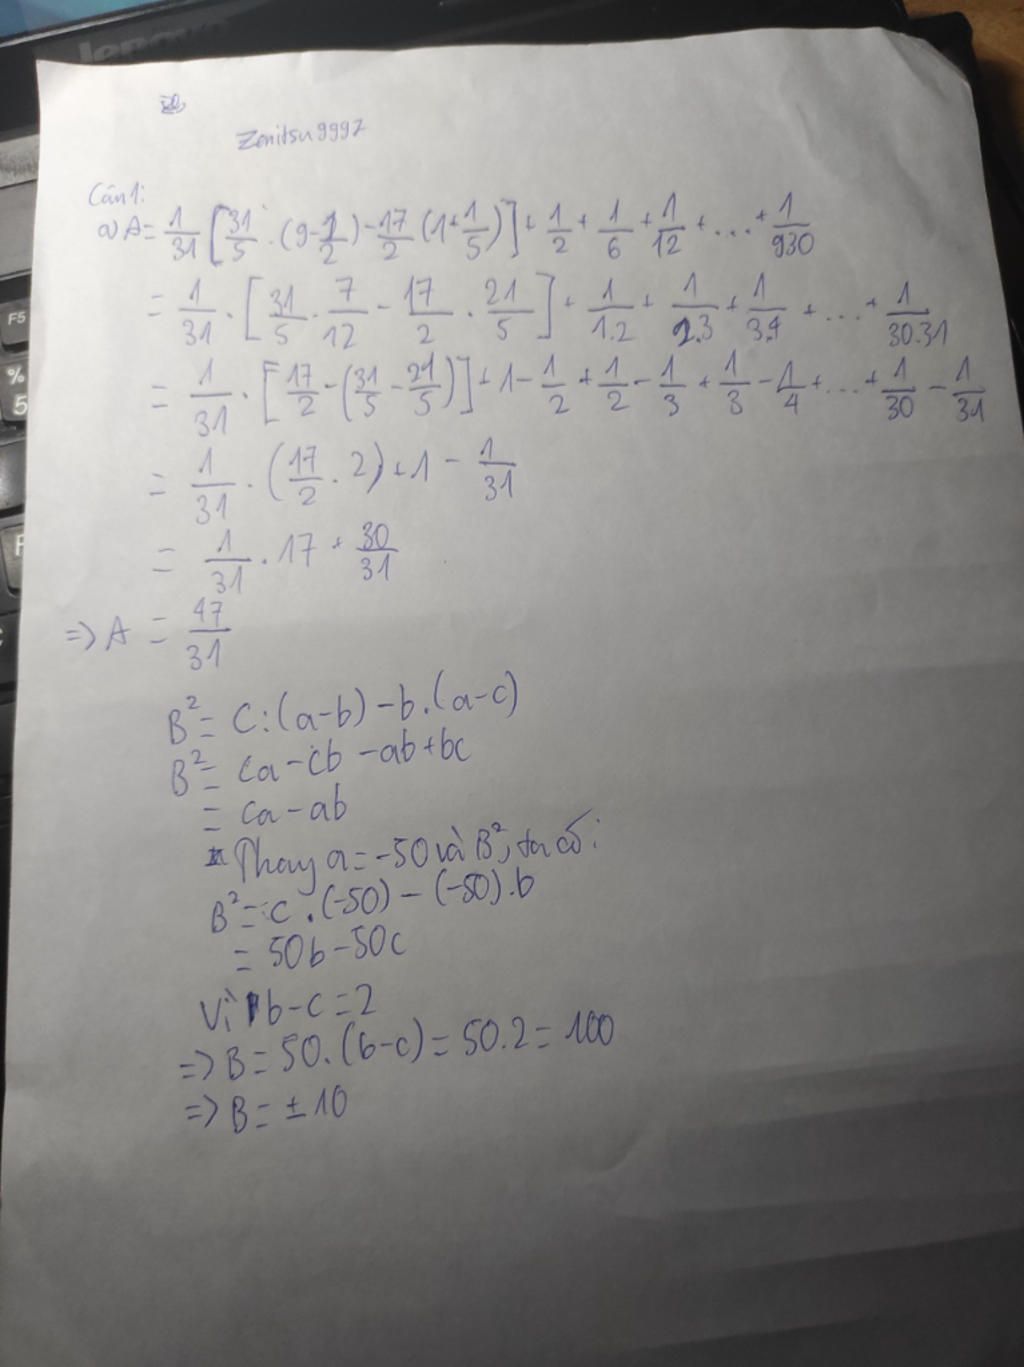 lenovo
Zenitsu9997
Câu 1:
a) A = 1/31 [31/5 . (9 - 1/2) - 17/2 (1 + 1/5)] + 1/2 + 1/6 + 1/12 + ... + 1/930
= 1/31 . [31/5 . 7/12 - 17/2 . 21/5] + 1/1.2 + 1/2.3 + 1/3.4 + ... + 1/30.31
= 1/31 . [17/2 - (31/5 - 21/5)] + 1 - 1/2 + 1/2 - 1/3 + 1/3 - 1/4 + ... + 1/30 - 1/31
= 1/31 . (17/2 . 2) + 1 - 1/31
= 1/31 . 17 + 30/31
=> A = 47/31
B² = C : (a-b) - b.(a-c)
B² = ca - cb - ab + bc
= ca - ab
* Thay a = -50 và B², ta có:
B² = c . (-50) - (-50) . b
= 50b - 50c
Vì b - c = 2
=> B = 50.(b-c) = 50.2 = 100
=> B = ± 10
F5
%
5